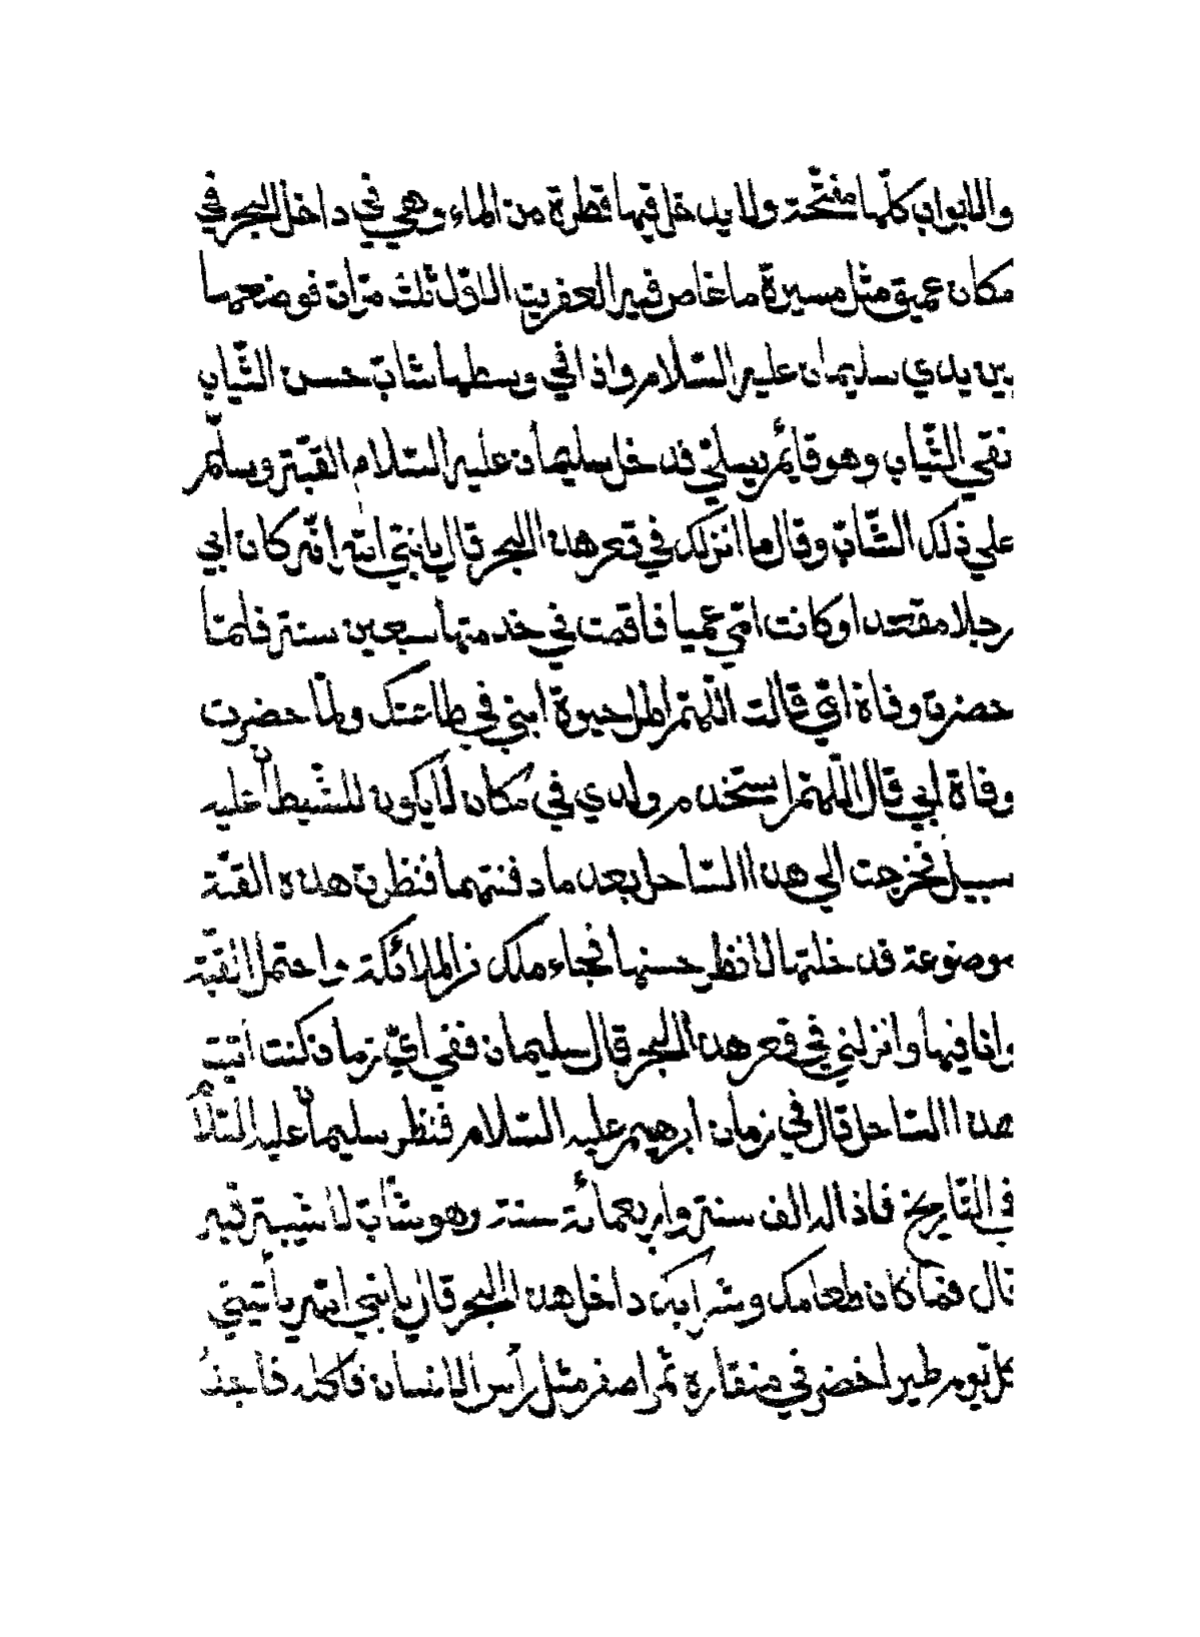 والابواب كلّها مفتّحة ولا يدخل فيها قطرة من الماء وهي في داخل البحر في
مكان عميق مثل مسيرة ما غاص فيه العفريت الاوّل ثلث مرّات فوضعها
بين يدي سليمان عليه السّلام واذا في وسطها شابّ حسن الثّياب
نقي الثّياب وهو قائم يصلّي فدخل سليمان عليه السّلام القبّة وسلّم
علي ذلك الشّابّ وقال ما انزلك في قعر هذا البحر قال يا نبّي اللّه انّه كان ابي
رجلا مقعدا وكانت امّي عميا فاقمت في خدمتها سبعين سنة فلمّا
حضرت وفاة امّي قالت اللّهمّ اطل حيوة ابني في طاعتك ولمّا حضرت
وفاة ابي قال اللّهمّ استخدم ولدي في مكان لا يكون للشّيطان عليه
سبيل فخرجت الي هذا السّاحل بعد ما دفنتهما فنظرت هذه القبّة
موضوعة فدخلتها لانظر حسنها فجاء ملك من الملائكة واحتمل القبّة
وانا فيها وانزلني في قعر هذا البحر قال سليمان ففي ايّ زمان كنت اتيت
هذا السّاحل قال في زمان ابرهيم عليه السّلام فنظر سليمان عليه السّلام
في التّاريخ فاذا له الف سنة واربعمائة سنة وهو شابّ لا شيبة فيه
قال فما كان طعامك وشرابك داخل هذا البحر قال يا نبي اللّه يأتيني
كلّ يوم طير اخضر في منقاره ثمر اصفر مثل رأس الانسان فآكله فاجد